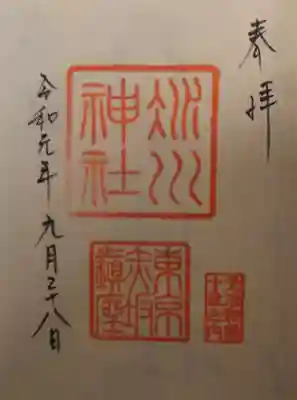 奉拝
氷川
神社
東京
赤坂
鎮座
令和元年 九月二十八日